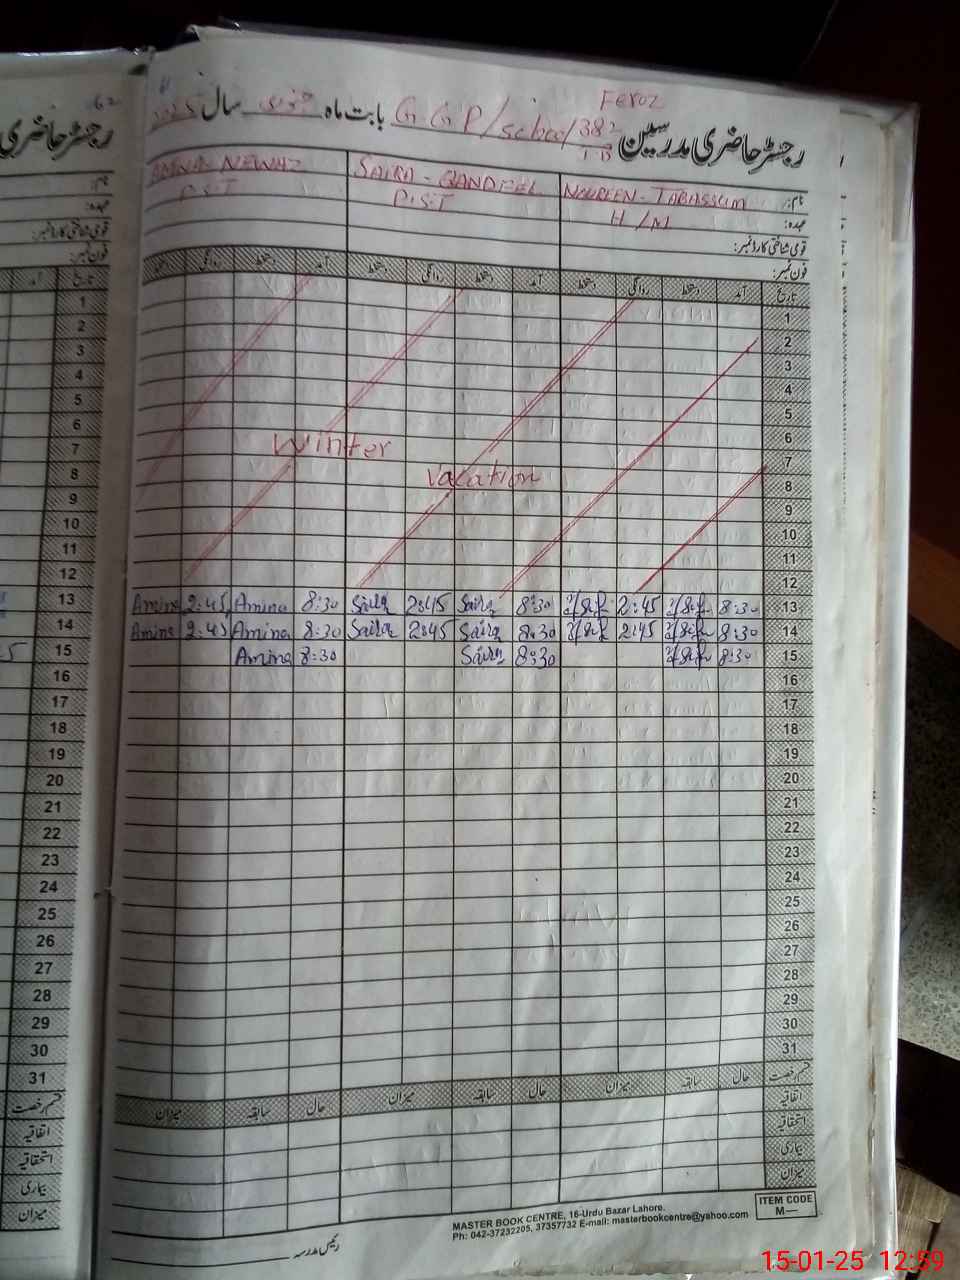 Feroz
رجسٹر حاضری مدرسین G.G.P/school/382 بابت ماہ جنوری سال 2025
نام: NAUREEN-TABASSUM SAIRA-QANDEEL AMNA NEWAZ
عہدہ: H/M P.S.T P.S.T
قومی شناختی کارڈ نمبر:
فون نمبر:
تاریخ آمد دستخط روانگی دستخط آمد دستخط روانگی دستخط آمد دستخط روانگی دستخط
1
2
3
4
5
6
Winter
7
vacation
8
9
10
11
12
13 8:30 2:45 Saira 8:30 Saira 2:45 Saira 8:30 Amina 2:45 Amina
14 8:30 2:45 8:30 Saira 2:45 Saira 8:30 Amina 2:45 Amina
15 8:30 8:30 Saira 8:30 Amina
16
17
18
19
20
21
22
23
24
25
26
27
28
29
30
31
قسم رخصت حال سابقہ میزان حال سابقہ میزان حال سابقہ میزان
اتفاقیہ
استحقاقیہ
بیماری
میزان
MASTER BOOK CENTRE, 16-Urdu Bazar Lahore.
Ph: 042-37232205, 37357732 E-mail: masterbookcentre@yahoo.com
ITEM CODE
M—
رئیس مدرسہ
رجسٹر حاضری
نام:
عہدہ:
قومی شناختی کارڈ نمبر:
فون نمبر:
تاریخ آمد
1
2
3
4
5
6
7
8
9
10
11
12
13
14
15
16
17
18
19
20
21
22
23
24
25
26
27
28
29
30
31
قسم رخصت
اتفاقیہ
استحقاقیہ
بیماری
میزان
15-01-25 12:59